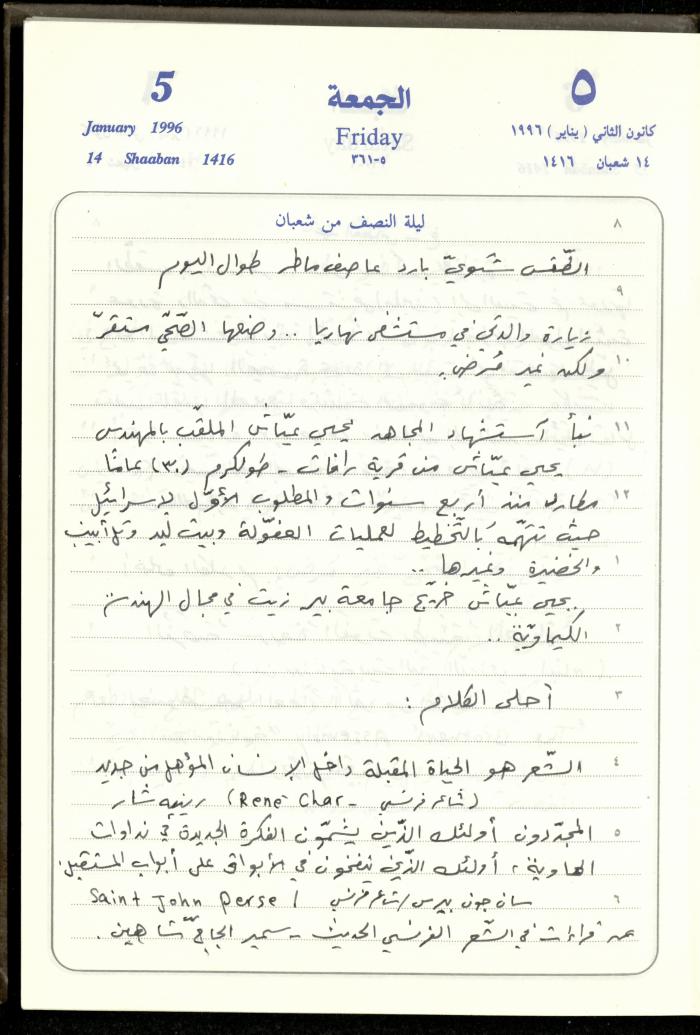 5 الجمعة ٥
January 1996 Friday كانون الثاني ( يناير ) ١٩٩٦
14 Shaaban 1416 ٣٦١-٥ ١٤ شعبان ١٤١٦
٨ ليلة النصف من شعبان
الطّقس شتويّ بارد عاصف ماطر طوال اليوم
٩
زيارة والدتي في مستشفى نهاريا .. وضعها الصّحّي مستقرّ
١٠ ولكن غير مُرضٍ.
١١ نبأ استشهاد المجاهد يحيى عيّاش الملقّب بالمهندس
يحيى عيّاش من قرية رافات - طولكرم (٣٠) عامًا
١٢ مطارد منذ أربع سنوات والمطلوب الأوّل لإسرائيل
حيث تتهّمه بالتّخطيط لعمليات العفّولة وبيت ليد وتل أبيب
١ والخضيرة وغيرها ..
يحيى عيّاش خرّيج جامعة بير زيت في مجال الهندسة
٢ الكيماويّة ..
٣ أحلى الكلام :
٤ الشّعر هو الحياة المقبلة داخل الإنسان المؤهل من جديد
(شاعر فرنسي - René Char) رينيه شار
٥ المجدّدون أولئك الذّين يشمّون الفكرة الجديدة في نداوات
الهاوية، أولئك الذّين ينفخون في الأبواق على أبواب المستقبل.
٦ سان جون بيرس/شاعر فرنسي / Saint John Perse
عن قراءات في الشّعر الفرنسي الحديث - سمير الحاج شاهين.